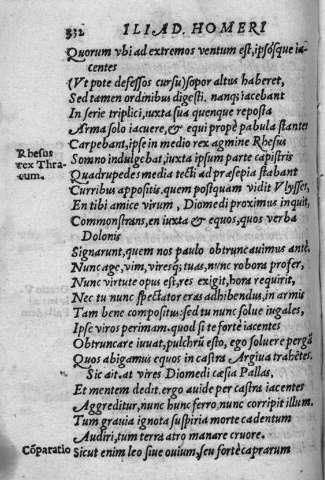 332 ILIAD. HOMERI
Quorum vbi ad extremos ventum est, ipsósque ia-
centes
(Vt pote defessos cursu) sopor altus haberet,
Sed tamen ordinibus digesti. nanq; iacebant
In serie triplici, iuxta sua quenque reposta
Arma solo iacuere, & equi propè pabula stantes
Carpebant, ipse in medio rex agmine Rhesus
Rhesus
rex Thra-
cum.
Somno indulgebat, iuxta ipsum parte capistris
Quadrupedes media tecti ad præsepia stabant
Curribus appositis, quem postquam vidit Vlysses,
En tibi amice virum, Diomedi proximus inquit,
Commonstrans, en iuxta & equos, quos verba
Dolonis
Signarunt, quem nos paulo obtruncauimus antè.
Nunc age, vim, viresq; tuas, nunc robora profer,
Nunc virtute opus est, res exigit, hora requirit,
Nec tu nunc spectator eras adhibendus, in armis
Tam bene compositus: sed tu nunc solue iugales,
Ipse viros perimam. quod si te fortè iacentes
Obtruncare iuuat, pulchrū esto, ego soluere pergā
Quos abigamus equos in castra Argiua trahētes.
Sic ait. at vires Diomedi cæsia Pallas,
Et mentem dedit. ergo auide per castra iacentes
Aggreditur, nunc hunc ferro, nunc corripit illum.
Tum grauia ignota suspiria morte cadentum
Audiri, tum terra atro manare cruore.
Cōparatio
Sicut enim leo siue ouium, seu fortè caprarum